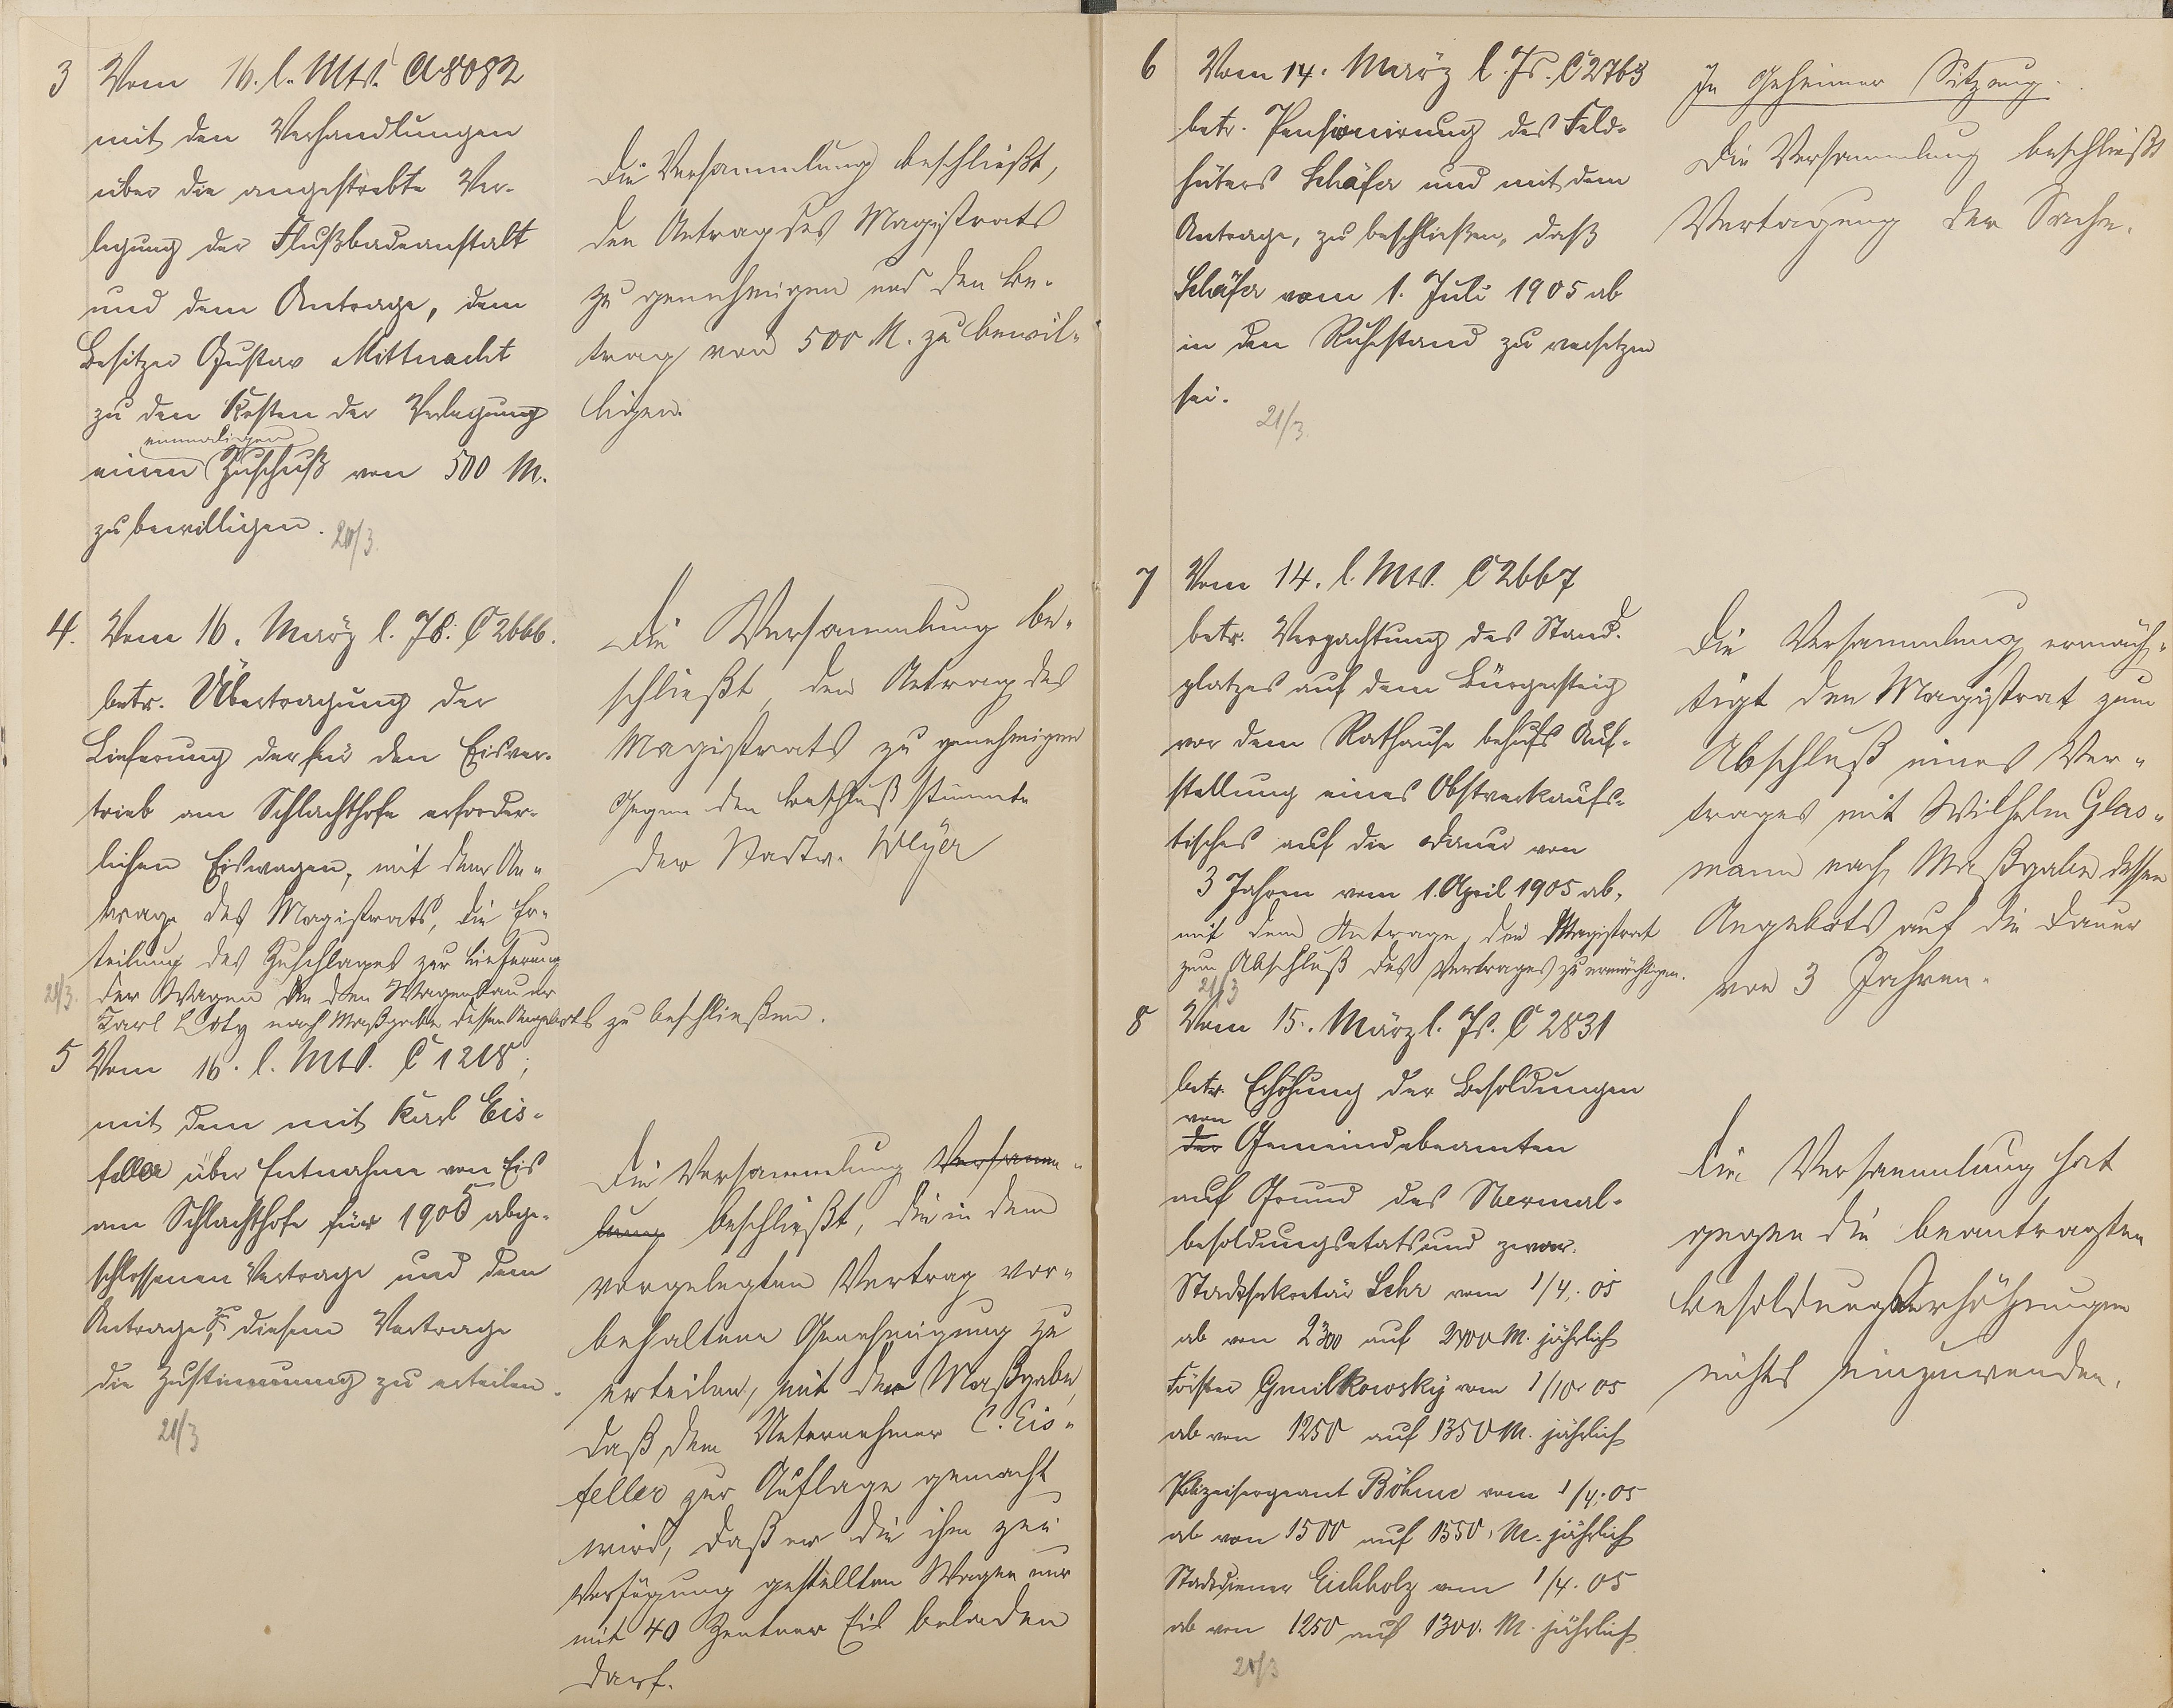 3 Vom 16. l. Mts. A 8082
mit den Verhandlungen
über die angestrebte Ver-
legung der Flußbadeanstalt
und dem Antrage, dem
Besitzer Gustav Mittnacht
zu den Kosten der Verlegung
einmaligen
einen Zuschuß von 500 M.
zu bewilligen. 20/3.
Die Versammlung beschließt,
den Antrag des Magistrats
zu genehmigen und den Be-
trag von 500 M. zu bewil-
ligen.
4. Vom 16. März l. Js. C 2666.
betr. Übertragung der
Lieferung der für den Eisver-
trieb am Schlachthofe erforder-
lichen Eiswagen, mit dem An-
trage des Magistrats, die Er-
teilung des Zuschlages zur Lieferung
21/3. der Wagen an den Wagenbauer
Karl Doty nach Maßgabe dessen Angebots zu beschließen.
Die Versammlung be-
schließt, den Antrag des
Magistrats zu genehmigen
Gegen den Beschluß stimmte
der Stadtv. Weyer
5 Vom 16. l. Mts. C 1218;
mit dem mit Karl Eis-
feller über Entnahme von Eis
am Schlachthofe für 1905 abge-
schlossenen Vertrage und dem
Antrage, diesem Vertrage
die Zustimmung zu erteilen.
21/3
Die Versammlung Versamm-
lung beschließt, die in dem
vorgelegten Vertrag vor-
behaltene Genehmigung zu
erteilen, mit der Maßgabe,
daß dem Unternehmer C. Eis-
feller zur Auflage gemacht
wird, daß er die ihm zur
Verfügung gestellten Wagen nur
mit 40 Zentner Eis beladen
darf.
6 Vom 14. März l. Js. C 2763
betr. Pensionierung des Feld-
hüters Schäfer und mit dem
Antrage, zu beschließen, daß
Schäfer vom 1. Juli 1905 ab
in den Ruhestand zu versetzen
sei.
21/3.
In Geheimer Sitzung.
Die Versammlung beschließt
Vertagung der Sache.
7 Vom 14. l. Mts. C 2667
betr. Verpachtung des Stand-
platzes auf dem Bürgersteig
vor dem Rathause behufs Auf-
stellung eines Obstverkaufs-
tisches auf die Dauer von
3 Jahren vom 1. April 1905 ab,
mit dem Antrage, den Magistrat
zum Abschluß des Vertrages zu ermächtigen.
21/3
Die Versammlung ermäch-
tigt den Magistrat zum
Abschluß eines Ver-
trages mit Wilhelm Glas-
mann nach Maßgabe dessen
Angebots auf die Dauer
von 3 Jahren.
8 Vom 15. März l. Js. C 2831
betr. Erhöhung der Besoldungen
von
der Gemeindebeamten
auf Grund des Normal-
besoldungsetats und zwar:
Stadtsekretär Lehr vom 1/4. 05
ab von 2300 auf 2400 M. jährlich
Förster Gmilkowsky vom 1/10 05
ab von 1250 auf 1350 M. jährlich
Polizeisergeant Böhme vom 1/4. 05
ab von 1500 auf 1550 M. jährlich
Stadtdiener Eichholz vom 1/4. 05
ab von 1250 auf 1300. M. jährlich
21/3
Die Versammlung hat
gegen die beantragten
Besoldungserhöhungen
nichts einzuwenden.